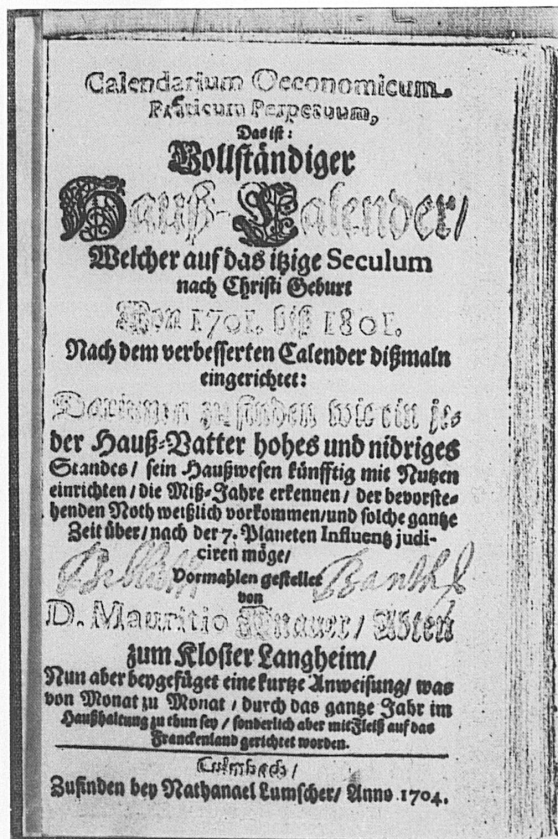 Calendarium Oeconomicum
Practicum Perpetuum,
Das ist:
Vollständiger
Hauß-Calender/
Welcher auf das itzige Seculum
nach Christi Geburt
Von 1701. biß 1801.
Nach dem verbesserten Calender dißmaln
eingerichtet:
Darinnen zu finden wie ein je-
der Hauß-Vatter hohes und nidriges
Standes/ sein Haußwesen künfftig mit Nutzen
einrichten/ die Miß-Jahre erkennen/ der bevorste-
henden Noth weißlich vorkommen/ und solche gantze
Zeit über/ nach der 7. Planeten Influentz judi-
ciren möge/
Vormahlen gestellet
von
D. Mauritio Knauer/ Abten
zum Kloster Langheim/
Nun aber beygefüget eine kurtze Anweisung/ was
von Monat zu Monat/ durch das gantze Jahr im
Haußhaltung zu thun sey/ sonderlich aber mit Fleiß auf das
Franckenland gerichtet worden.
Culmbach/
Zufinden bey Nathanael Lumscher/ Anno 1704.